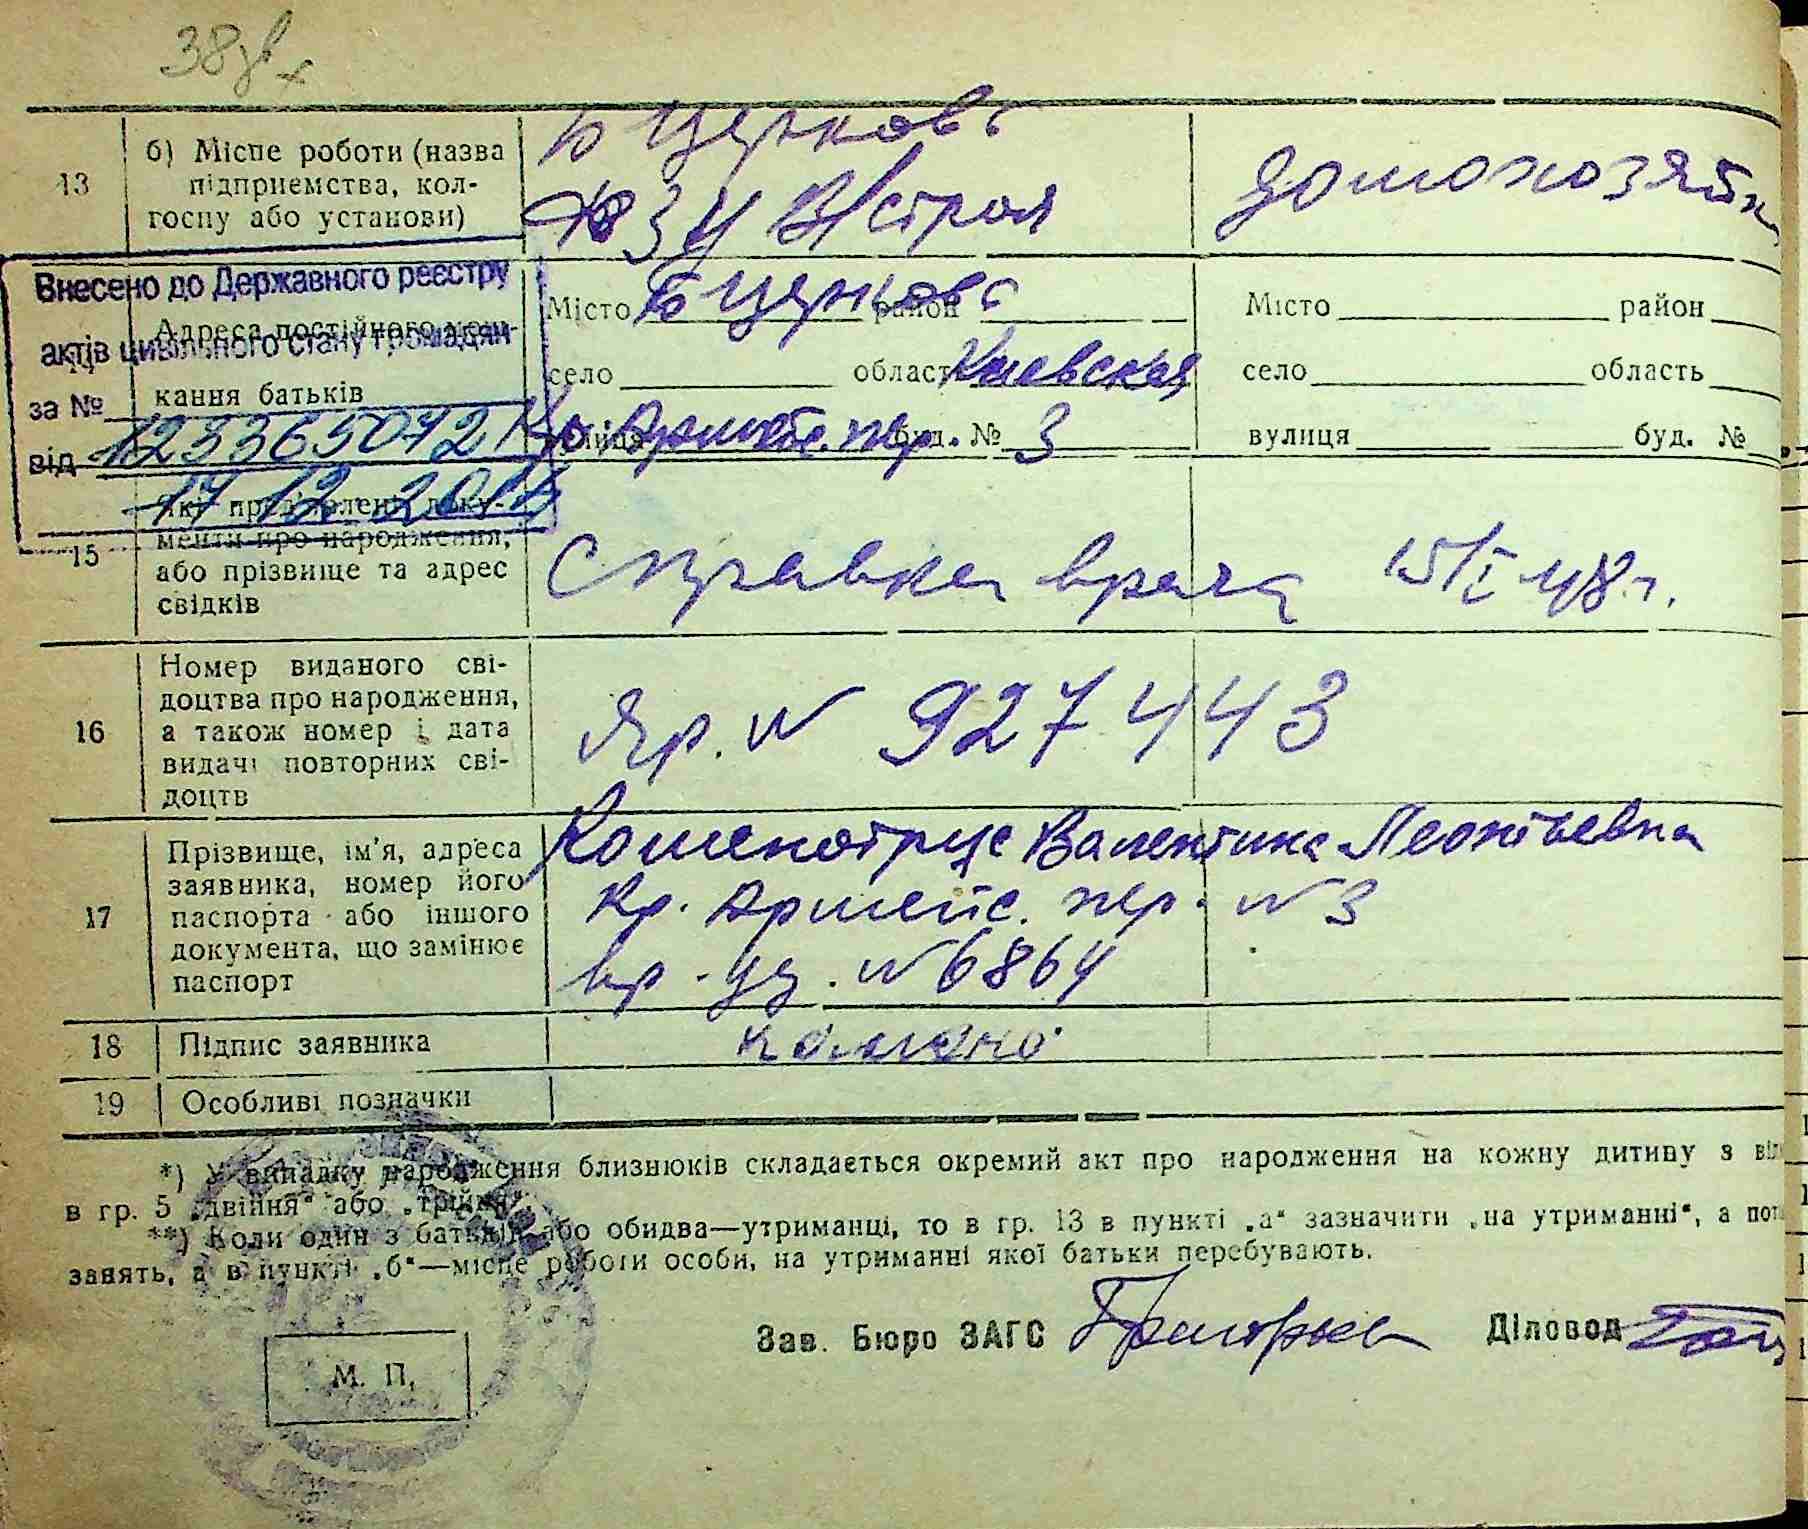 38
13
б) Місце роботи (назва
підприємства, кол-
госпу або установи)
Б Церковь
домохозяйк
Внесено до Державного реєстру
актів цивільного стану громадян
за №
123365072
від
17 12
Адреса постійного меш-
кання батьків
Місто Б Церковь район
село область Киевская
вулиця Кр. Армейс. пер. буд. № 3
Місто район
село область
вулиця буд. №
15
Які пред'явлені доку-
менти про народження,
або прізвище та адрес
свідків
Справка врача 15/I 48 г.
16
Номер виданого сві-
доцтва про народження,
а також номер і дата
видачі повторних сві-
доцтв
N 927443
17
Прізвище, ім'я, адреса
заявника, номер його
паспорта або іншого
документа, що замінює
паспорт
Валентина Леонтьевна
Кр. Армейс. пер. N 3
вр. уд. N 6864
18
Підпис заявника
19
Особливі позначки
*) У випадку народження близнюків складається окремий акт про народження на кожну дитину з від
в гр. 5 „двійня“ або „трійня“.
**) Коли один з батьків або обидва—утриманці, то в гр. 13 в пункті „а“ зазначити „на утриманні“, а пот
занять, а в пункті „б“—місце роботи особи, на утриманні якої батьки перебувають.
Зав. Бюро ЗАГС
Діловод
М. П.